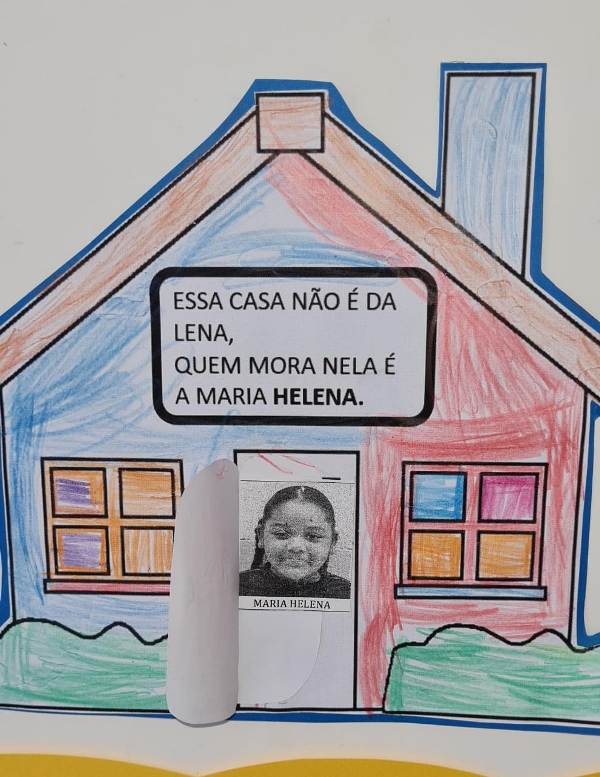 ESSA CASA NÃO É DA
LENA,
QUEM MORA NELA É
A MARIA HELENA.
MARIA HELENA